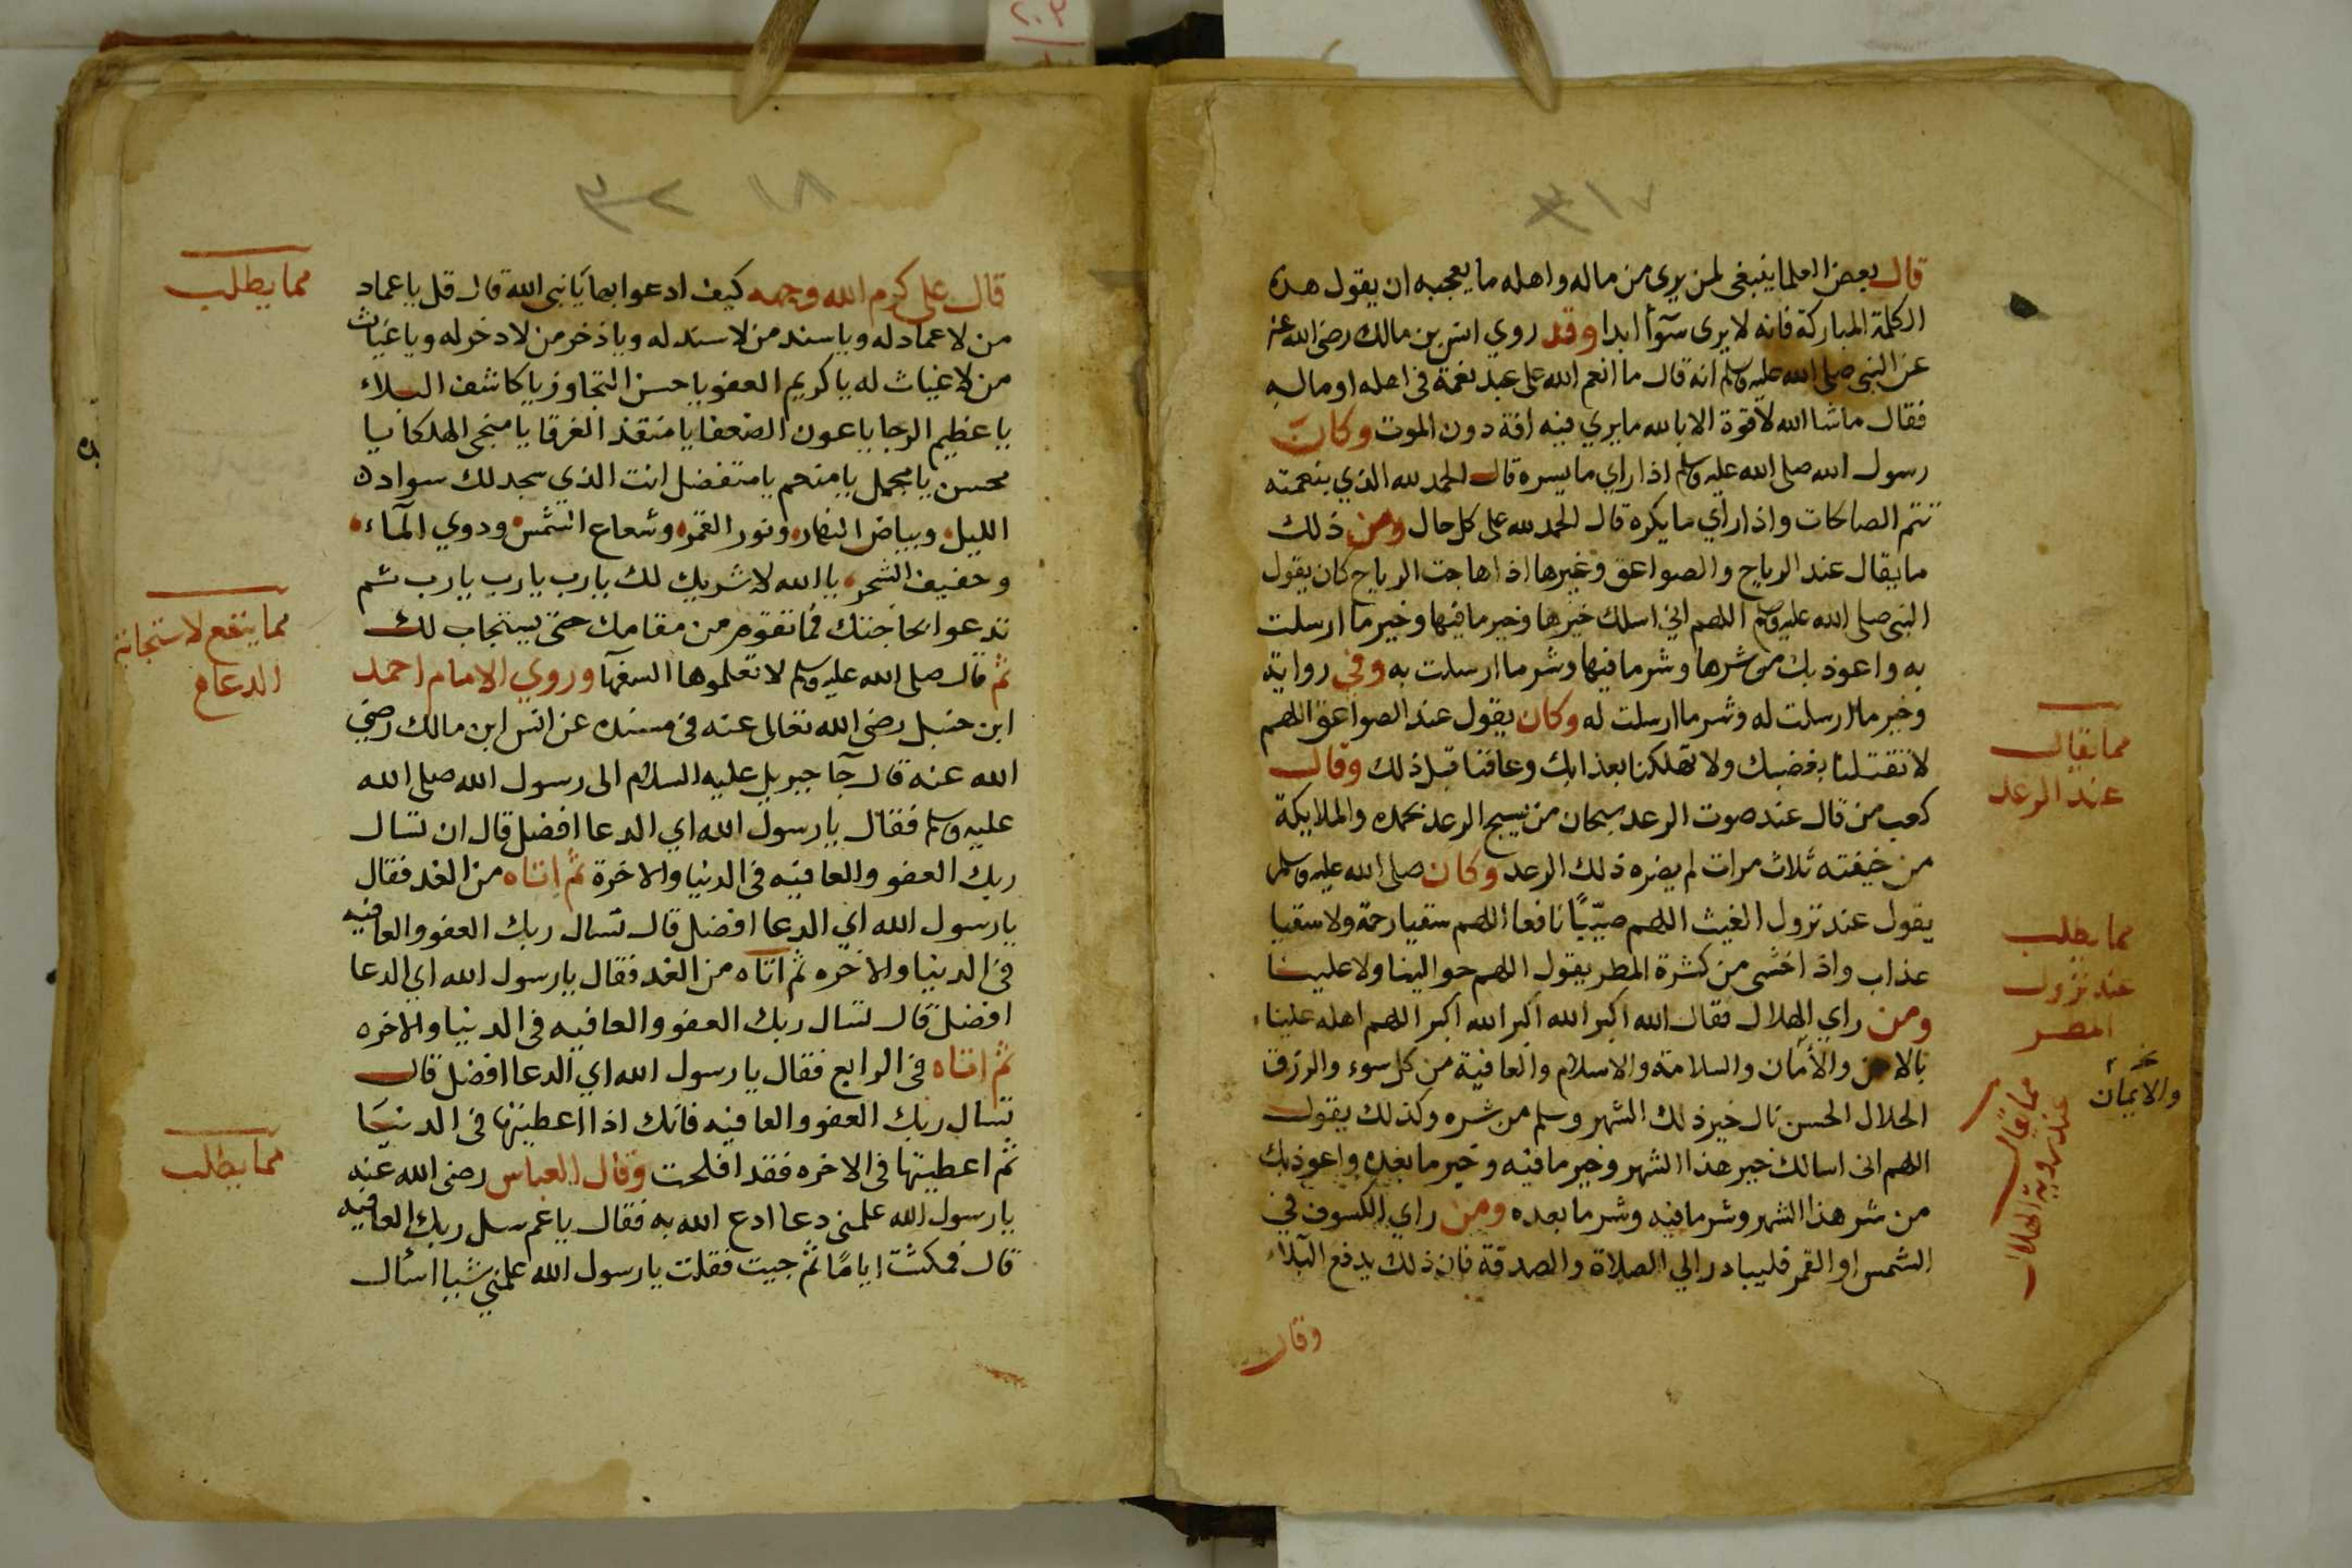 قال بعض العلما ينبغي لمن يرى من ماله واهله ما يعجبه ان يقول هذه
الكلمة المباركة فانه لا يرى سوأ ابدا وقد روي انس بن مالك رضي الله عنه
عن النبي صلى الله عليه وسلم انه قال ما انعم الله على عبد نعمة في اهله او ماله
فقال ماشا الله لا قوة الا بالله ما يري فيه افة دون الموت وكان
رسول الله صلى الله عليه وسلم اذا راي ما يسره قال الحمد لله الذي بنعمته
تتم الصالحات واذا راي ما يكره قال الحمد لله على كل حال ومن ذلك
ما يقال عند الرياح والصواعق وغيرها اذا هاجت الرياح كان يقول
النبي صلى الله عليه وسلم اللهم اني اسلك خيرها وخير ما فيها وخير ما ارسلت
به واعوذ بك من شرها وشر ما فيها وشر ما ارسلت به وفي رواية
وخير ما ارسلت له وشر ما ارسلت له وكان يقول عند الصواعق اللهم
لا تقتلنا بغضبك ولا تهلكنا بعذابك وعافنا قبل ذلك وقال
كعب من قال عند صوت الرعد سبحان من يسبح الرعد بحمده والملايكة
من خيفته ثلاث مرات لم يضره ذلك الرعد وكان صلى الله عليه وسلم
يقول عند نزول الغيث اللهم صيّبًا نافعا اللهم سقيا رحمة ولا سقيا
عذاب واذا خشى من كثرة المطر يقول اللهم حوالينا ولا علينا
ومن راي الهلال فقال الله اكبر الله اكبر الله اكبر اللهم اهله علينا
بالامن والأمان والسلامة والاسلام والعافية من كل سوء والرزق
الحلال الحسن نال خير ذلك الشهر وسلم من شره وكذلك يقول
اللهم انى اسالك خير هذا الشهر وخير ما فيه وخير ما بعده واعوذ بك
من شر هذا الشهر وشر ما فيه وشر ما بعده ومن راي الكسوف في
الشمس او القمر فليبادر الي الصلاة والصدقة فان ذلك يدفع البلاء
وقال
مما يقال
عند الرعد
مما يطلب
عند نزول
المطر
والايمان
مما يقال
عند روية الهلال
١٧
١٨
قال على كرم الله وجهه كيف ادعوا بها يا نبى الله قال قل يا عماد
من لا عماد له ويا سند من لا سند له ويا ذخر من لا ذخر له ويا غياث
من لا غياث له يا كريم العفو يا حسن التجاوز يا كاشف البلاء
يا عظيم الرجا يا عون الضعفا يا منقذ الغرقا يا منجي الهلكا يا
محسن يا مجمل يا منعم يا متفضل انت الذي سجد لك سواد
الليل وبياض النهار ونور القمر وشعاع الشمس ودوي المآء
وحفيف الشجر يا الله لا شريك لك يا رب يا رب يا رب ثم
تدعوا بحاجتك فما تقوم من مقامك حتى يستجاب لك
ثم قال صلى الله عليه وسلم لا تعلموها السفهآ وروي الامام احمد
ابن حنبل رضي الله تعالى عنه في مسنده عن انس ابن مالك رضي
الله عنه قال جآ جبريل عليه السلام الى رسول الله صلى الله
عليه وسلم فقال يا رسول الله اي الدعا افضل قال ان تسال
ربك العفو والعافيه فى الدنيا والاخرة ثم اتاه من الغد فقال
يا رسول الله اي الدعا افضل قال تسال ربك العفو والعافيه
في الدنيا والاخره ثم اتاه من الغد فقال يا رسول الله اي الدعا
افضل قال تسال ربك العفو والعافيه فى الدنيا والاخره
ثم اتاه في الرابع فقال يا رسول الله اي الدعا افضل قال
تسال ربك العفو والعافيه فانك اذا اعطيتها فى الدنيا
ثم اعطيتها فى الاخره فقد افلحت وقال العباس رضى الله عنه
يا رسول الله علمني دعا ادع الله به فقال يا عم سل ربك العافيه
قال فمكثت ايامًا ثم جيت فقلت يا رسول الله علمني شيا اسأل
مما يطلب
مما ينفع لاستجابة
الدعاء
مما يطلب